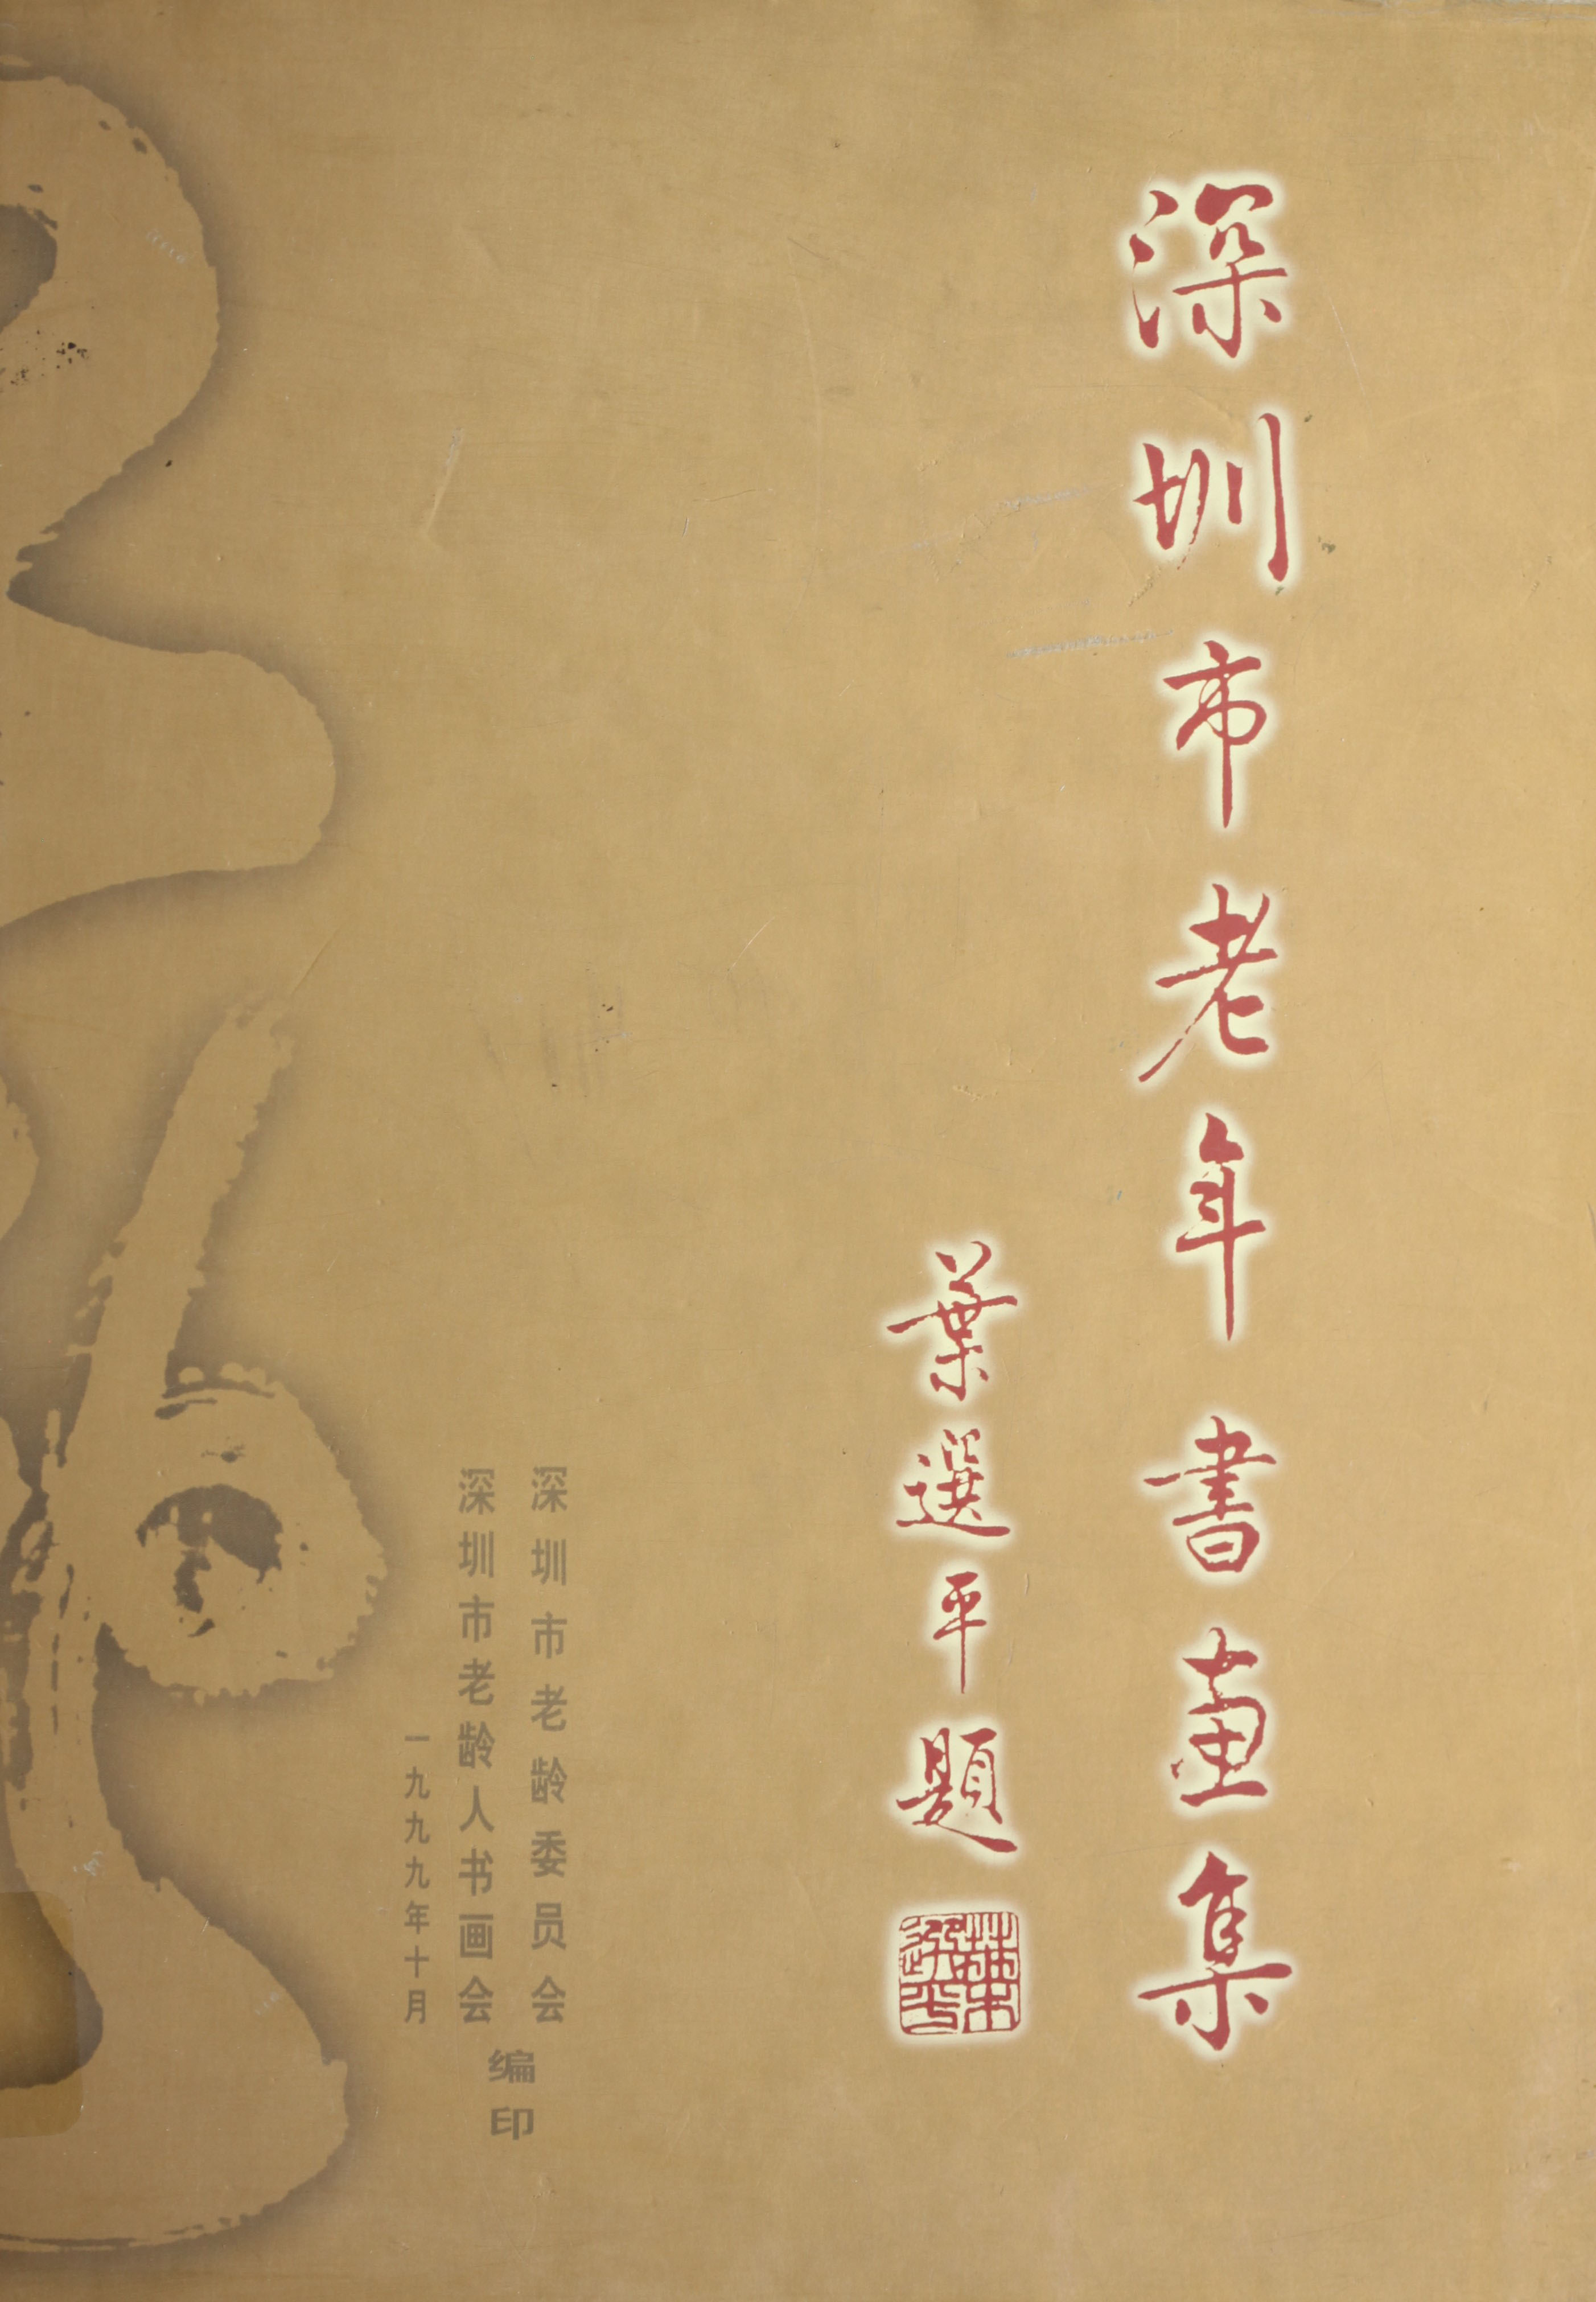 深圳市老年書画集
葉選平題
葉選平
深圳市老龄委员会
深圳市老龄人书画会
编印
一九九九年十月